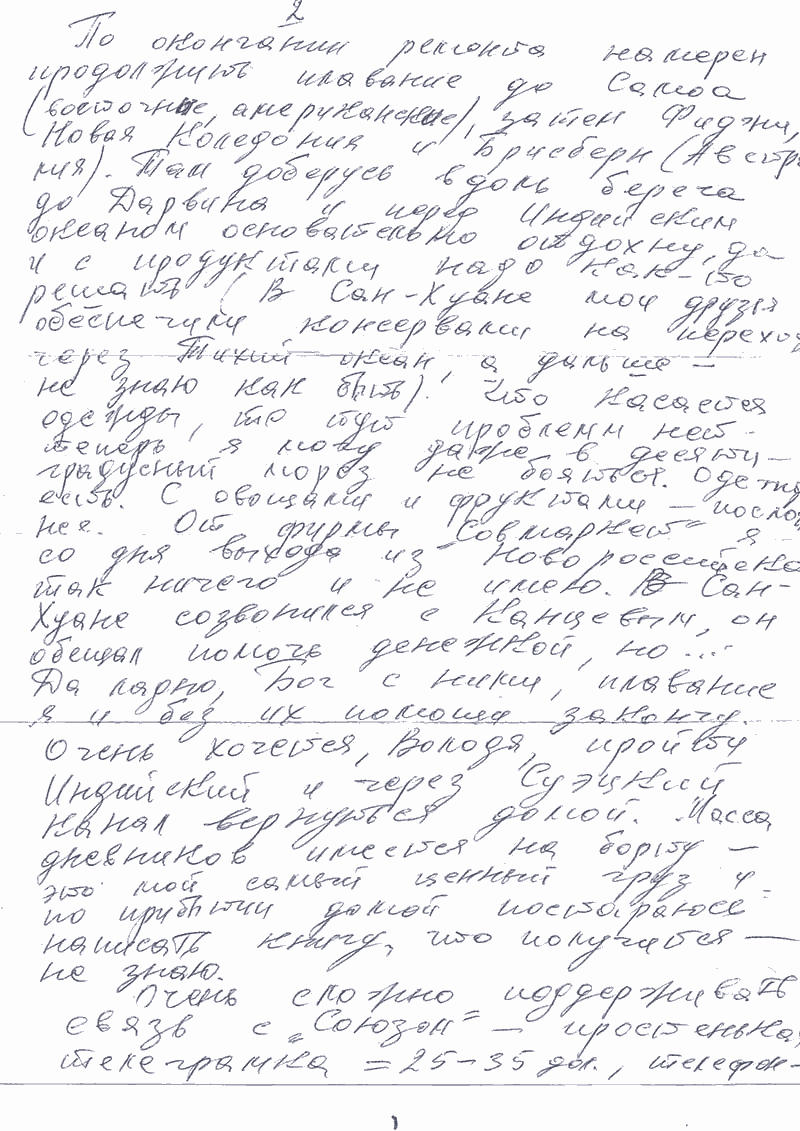 2
По окончании ремонта намерен
продолжить плавание до Самоа
(восточные, американские), затем Фиджи,
Новая Каледония и Брисберн (Австра
лия). Там доберусь вдоль берега
до Дарвина и перед Индийским
океаном основательно отдохну, да
и с продуктами надо как-то
решать (В Сан-Хуане мои друзья
обеспечили консервами на переход
через Тихий океан, а дальше —
не знаю как быть). Что касается
одежды, то тут проблемы нет -
теперь я могу даже в десяти-
градусный мороз не бояться. Одежка
есть. С овощами и фруктами — послож
нее. От фирмы "Совмаркет" я
со дня выхода из Новороссийска
так ничего и не имею. В Сан-
Хуане созвонился с Канцевым, он
обещал помочь денежкой, но ...
Да ладно, Бог с ними, плавание
я и без их помощи закончу.
Очень хочется, Володя, пройти
Индийский и через Суэцкий
канал вернуться домой. Масса
дневников имеется на борту —
это мой самый ценный груз и
по прибытии домой постараюсь
написать книгу, что получится —
не знаю.
Очень сложно поддерживать
связь с "Союзом" — простенькая
телеграмка = 25-35 дол., телефон-
1